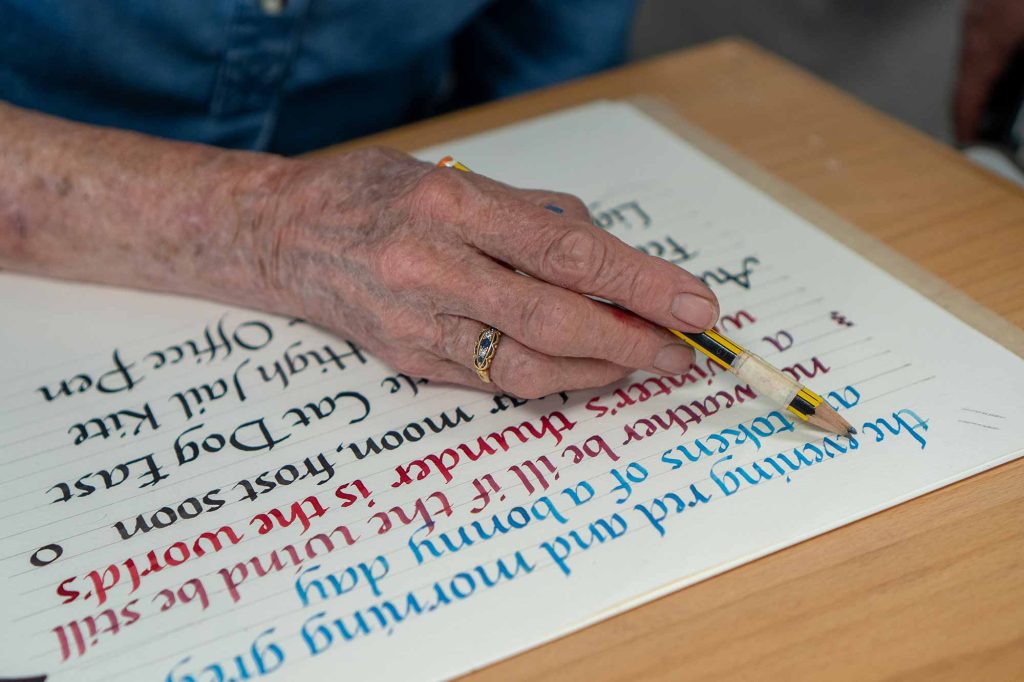 the evening red and morning grey
tokens of a bonny day
no weather be ill if the wind be still
a winter's thunder is the world's
moon, frost soon o
Cat Dog East
High Jail Kite
Office Pen